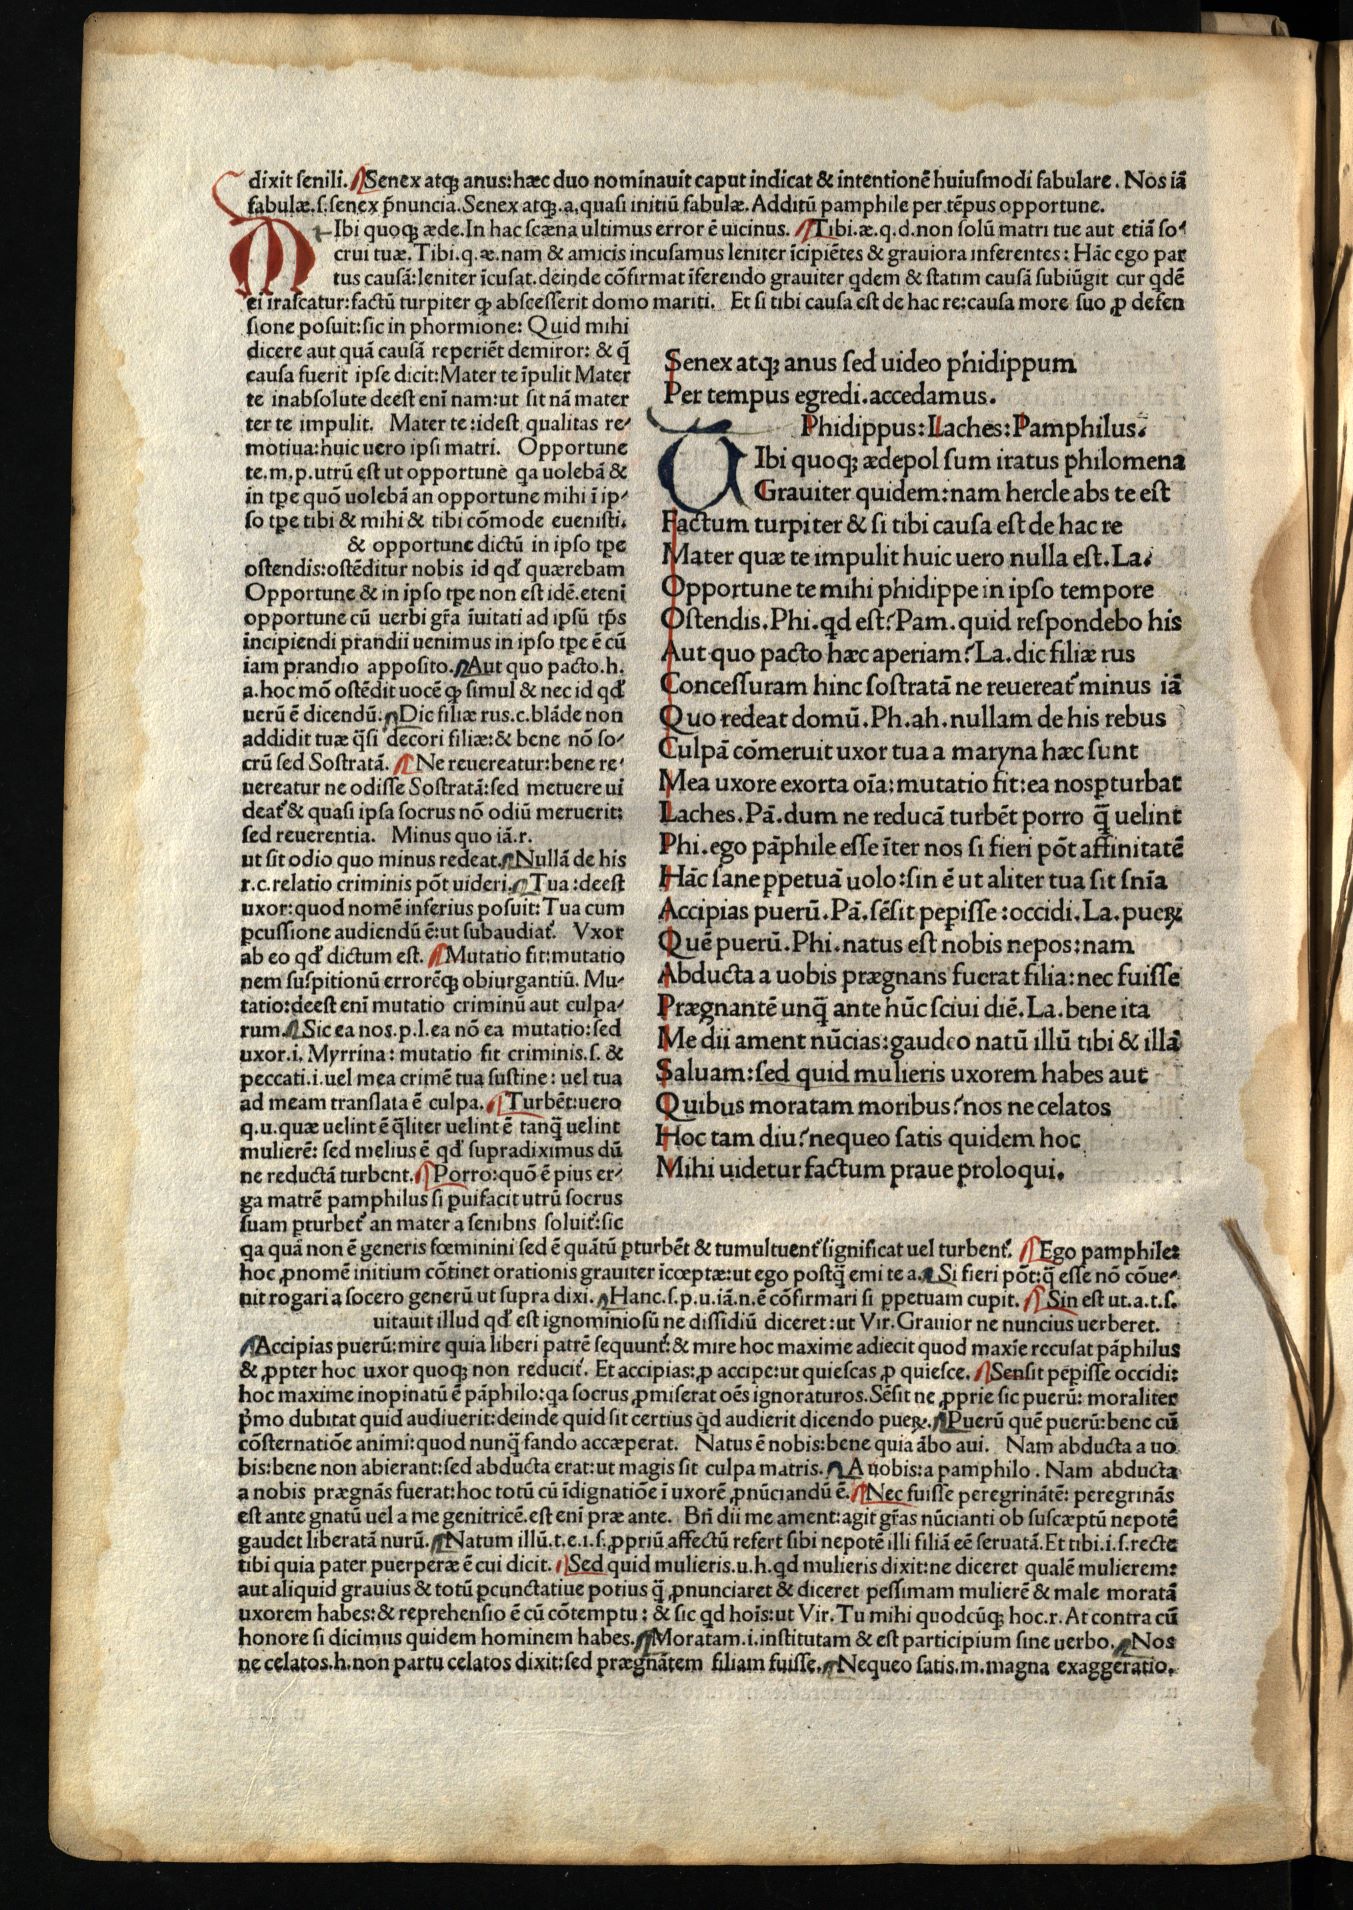 dixit senili. Senex atqꝫ anus:hæc duo nominauit caput indicat & intentionē huiusmodi fabulare. Nos iā
fabulæ.s.senex p̄nuncia.Senex atqꝫ.a.quasi initiū fabulæ.Additū pamphile per tēpus opportune.
MIbi quoqꝫ æde.In hac scæna ultimus error ē uicinus. Tibi.æ.q.d.non solū matri tue aut etiā so-
crui tuæ.Tibi.q.æ.nam & amicis incusamus leniter īcipiētes & grauiora inferentes: Hāc ego par
tus causā:leniter īcusat.deinde cōfirmat īferendo grauiter qdem & statim causā subiūgit cur qdē
ei irascatur:factū turpiter ꝙ abscesserit domo mariti. Et si tibi causa est de hac re:causa more suo ꝓ defen
sione posuit:sic in phormione: Quid mihi
dicere aut quā causā reperiēt demiror: & q̄
causa fuerit ipse dicit:Mater te īpulit Mater
te inabsolute deest enī nam:ut sit nā mater
ter te impulit. Mater te:idest qualitas re-
motiua:huic uero ipsi matri. Opportune
te.m.p.utrū est ut opportune qa uolebā &
in tꝑe quō uolebā an opportune mihi ī ip-
so tꝑe tibi & mihi & tibi cōmode euenisti.
& opportune dictū in ipso tꝑe
ostendis:ostēditur nobis id qđ quærebam
Opportune & in ipso tꝑe non est idē.etenī
opportune cū uerbi gr̄a īuitati ad ipsū tp̄s
īncipiendi prandii uenimus in ipso tꝑe ē cū
iam prandio apposito. Aut quo pacto.h.
a.hoc mō ostēdit uocē ꝙ simul & nec id qđ
uerū ē dicendū. Dic filiæ rus.c.blāde non
addidit tuæ q̄si decori filiæ:& bene nō so-
crū sed Sostratā. Ne reuereatur:bene re-
uereatur ne odisse Sostratā:sed metuere ui
deat᷑ & quasi ipsa socrus nō odiū meruerit:
sed reuerentia. Minus quo iā.r.
ut sit odio quo minus redeat. Nullā de his
r.c.relatio criminis pōt uideri. Tua:deest
uxor:quod nomē inferius posuit:Tua cum
ꝑcussione audiendū ē:ut subaudiat᷑. Vxor
ab eo qđ dictum est. Mutatio fit:mutatio
nem suspitionū errorēqꝫ obiurgantiū. Mu-
tatio:deest enī mutatio criminū aut culpa-
rum. Sic ea nos.p.l.ea nō ea mutatio:sed
uxor.i. Myrrina: mutatio fit criminis.s. &
peccati.i.uel mea crimē tua sustine: uel tua
ad meam translata ē culpa. Turbēt:uero
q.u.quæ uelint ē q̄liter uelint ē tanq̄ uelint
mulierē: sed melius ē qđ supradiximus dū
ne reductā turbent. Porro:quō ē pius er-
ga matrē pamphilus si ꝑuifacit utrū socrus
suam ꝑturbet᷑ an mater a senibns soluit᷑:sic
qa quā non ē generis fœminini sed ē quātū ꝑturbēt & tumultuent᷑ significat uel turbent᷑. Ego pamphile:
hoc ꝓnomē initium cōtinet orationis grauiter īcœptæ:ut ego postq̄ emi te a. Si fieri pōt:q̄ esse nō cōue-
nit rogari a socero generū ut supra dixi. Hanc.s.p.u.iā.n.ē cōfirmari si ꝑpetuam cupit. Sin est ut.a.t.s.
uitauit illud qđ est ignominiosū ne dissidiū diceret:ut Vir.Grauior ne nuncius uerberet.
Accipias puerū:mire quia liberi patrē sequunt᷑:& mire hoc maxime adiecit quod maxīe recusat pāphilus
& ꝓpter hoc uxor quoqꝫ non reducit᷑. Et accipias:ꝓ accipe:ut quiescas ꝓ quiesce. Sensit pēpisse occidi:
hoc maxime inopinatū ē pāphilo:qa socrus ꝓmiserat oēs ignoraturos.Sēsit ne ꝓprie sic puerū: moraliter
p̄mo dubitat quid audiuerit:deinde quid sit certius q̄d audierit dicendo pueꝝ. Puerū quē puerū:bene cū
cōsternatiōe animi:quod nunq̄ fando accæperat. Natus ē nobis:bene quia ābo aui. Nam abducta a uo
bis:bene non abierant:sed abducta erat:ut magis sit culpa matris. A uobis:a pamphilo. Nam abducta
a nobis prægnās fuerat:hoc totū cū īdignatiōe ī uxorē ꝓnūciandū ē. Nec fuisse peregrināntē: peregrinās
est ante gnatū uel a me genitricē.est enī præ ante. Bn̄ dii me ament:agit gr̄as nūcianti ob suscæptū nepotē
gaudet liberatā nurū. Natum illū.t.e.i.s.ꝓpriū affectū refert sibi nepotē illi filiā eē seruatā.Et tibi.i.s.recte
tibi quia pater puerperæ ē cui dicit. Sed quid mulieris.u.h.qd mulieris dixit:ne diceret qualē mulierem:
aut aliquid grauius & totū ꝑcunctatiue potius q̄ ꝓnunciaret & diceret pessimam mulierē & male moratā
uxorem habes:& reprehensio ē cū cōtemptu: & sic qd hoīs:ut Vir.Tu mihi quodcūqꝫ hoc.r.At contra cū
honore si dicimus quidem hominem habes. Moratam.i.institutam & est participium sine uerbo. Nos
ne celatos.h.non partu celatos dixit:sed prægnātem filiam fuisse. Nequeo satis.m.magna exaggeratio.
Senex atqꝫ anus sed uideo phidippum
Per tempus egredi.accedamus.
Phidippus:Laches:Pamphilus.
TIbi quoqꝫ ædepol sum iratus philomena
Grauiter quidem:nam hercle abs te est
Factum turpiter & si tibi causa est de hac re
Mater quæ te impulit huic uero nulla est.La.
Opportune te mihi phidippe in ipso tempore
Ostendis.Phi.qd est?Pam.quid respondebo his
Aut quo pacto hæc aperiam?La.dic filiæ rus
Concessuram hinc sostratā ne reuereat᷑ minus iā
Quo redeat domū.Ph.ah.nullam de his rebus
Culpā cōmeruit uxor tua a maryna hæc sunt
Mea uxore exorta oīa:mutatio fit:ea nosꝑturbat
Laches.Pā.dum ne reducā turbēt porro q̄ uelint
Phi.ego pāphile esse īter nos si fieri pōt affinitatē
Hāc sane ꝑpetuā uolo:sin ē ut aliter tua sit snīa
Accipias puerū.Pā.sēsit pepisse:occidi.La.pueꝝ
Quē puerū.Phi.natus est nobis nepos:nam
Abducta a uobis prægnans fuerat filia:nec fuisse
Prægnantē unq̄ ante hūc sciui diē.La.bene ita
Me dii ament nūcias:gaudeo natū illū tibi & illā
Saluam:sed quid mulieris uxorem habes aut
Quibus moratam moribus?nos ne celatos
Hoc tam diu?nequeo satis quidem hoc
Mihi uidetur factum praue proloqui.